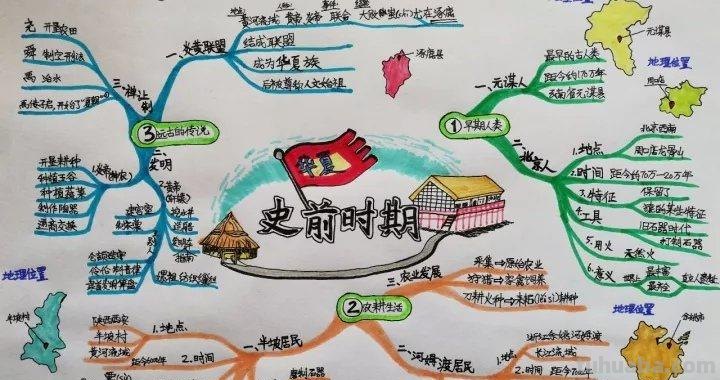 史前时期
华夏
①早期人类
一、元谋人
最早的古人类
距今约170万年
云南省元谋县
二、北京人
1.地点
北京西南
周口店龙骨山
2.时间
距今约70万—20万年
3.特征
保留了
猿的某些特征
4.工具
旧石器时代
打制石器
5.用火
天然火
6.意义
最丰富
最齐全
直立人遗址
地理位置
元谋县
地理位置
周口店
②农耕生活
一、半坡居民
1.地点
陕西西安
半坡村
黄河流域
2.时间
磨制石器
二、河姆渡居民
1.地点
浙江余姚河姆渡
长江流域
2.时间
三、农业发展
采集→原始农业
狩猎→家禽饲养
刀耕火种→耒耜(lěi sì)耕种
地理位置
半坡村
地理位置
余姚市
③远古的传说
一、炎黄联盟
黄河流域
黄帝 炎帝
联合
大败蚩尤
于涿鹿
结成联盟
成为华夏族
后被尊称人文始祖
涿鹿县
二、发明
1.炎帝(神农)
开垦耕种
种植五谷
种植蔬菜
制作陶器
通商交换
2.黄帝(轩辕)
建宫室
制衣裳
挖水井
造船
指南
仓颉造字
伶伦制音律
嫘祖
三、禅让制
尧
开垦农田
舜
制定刑法
禹
治水